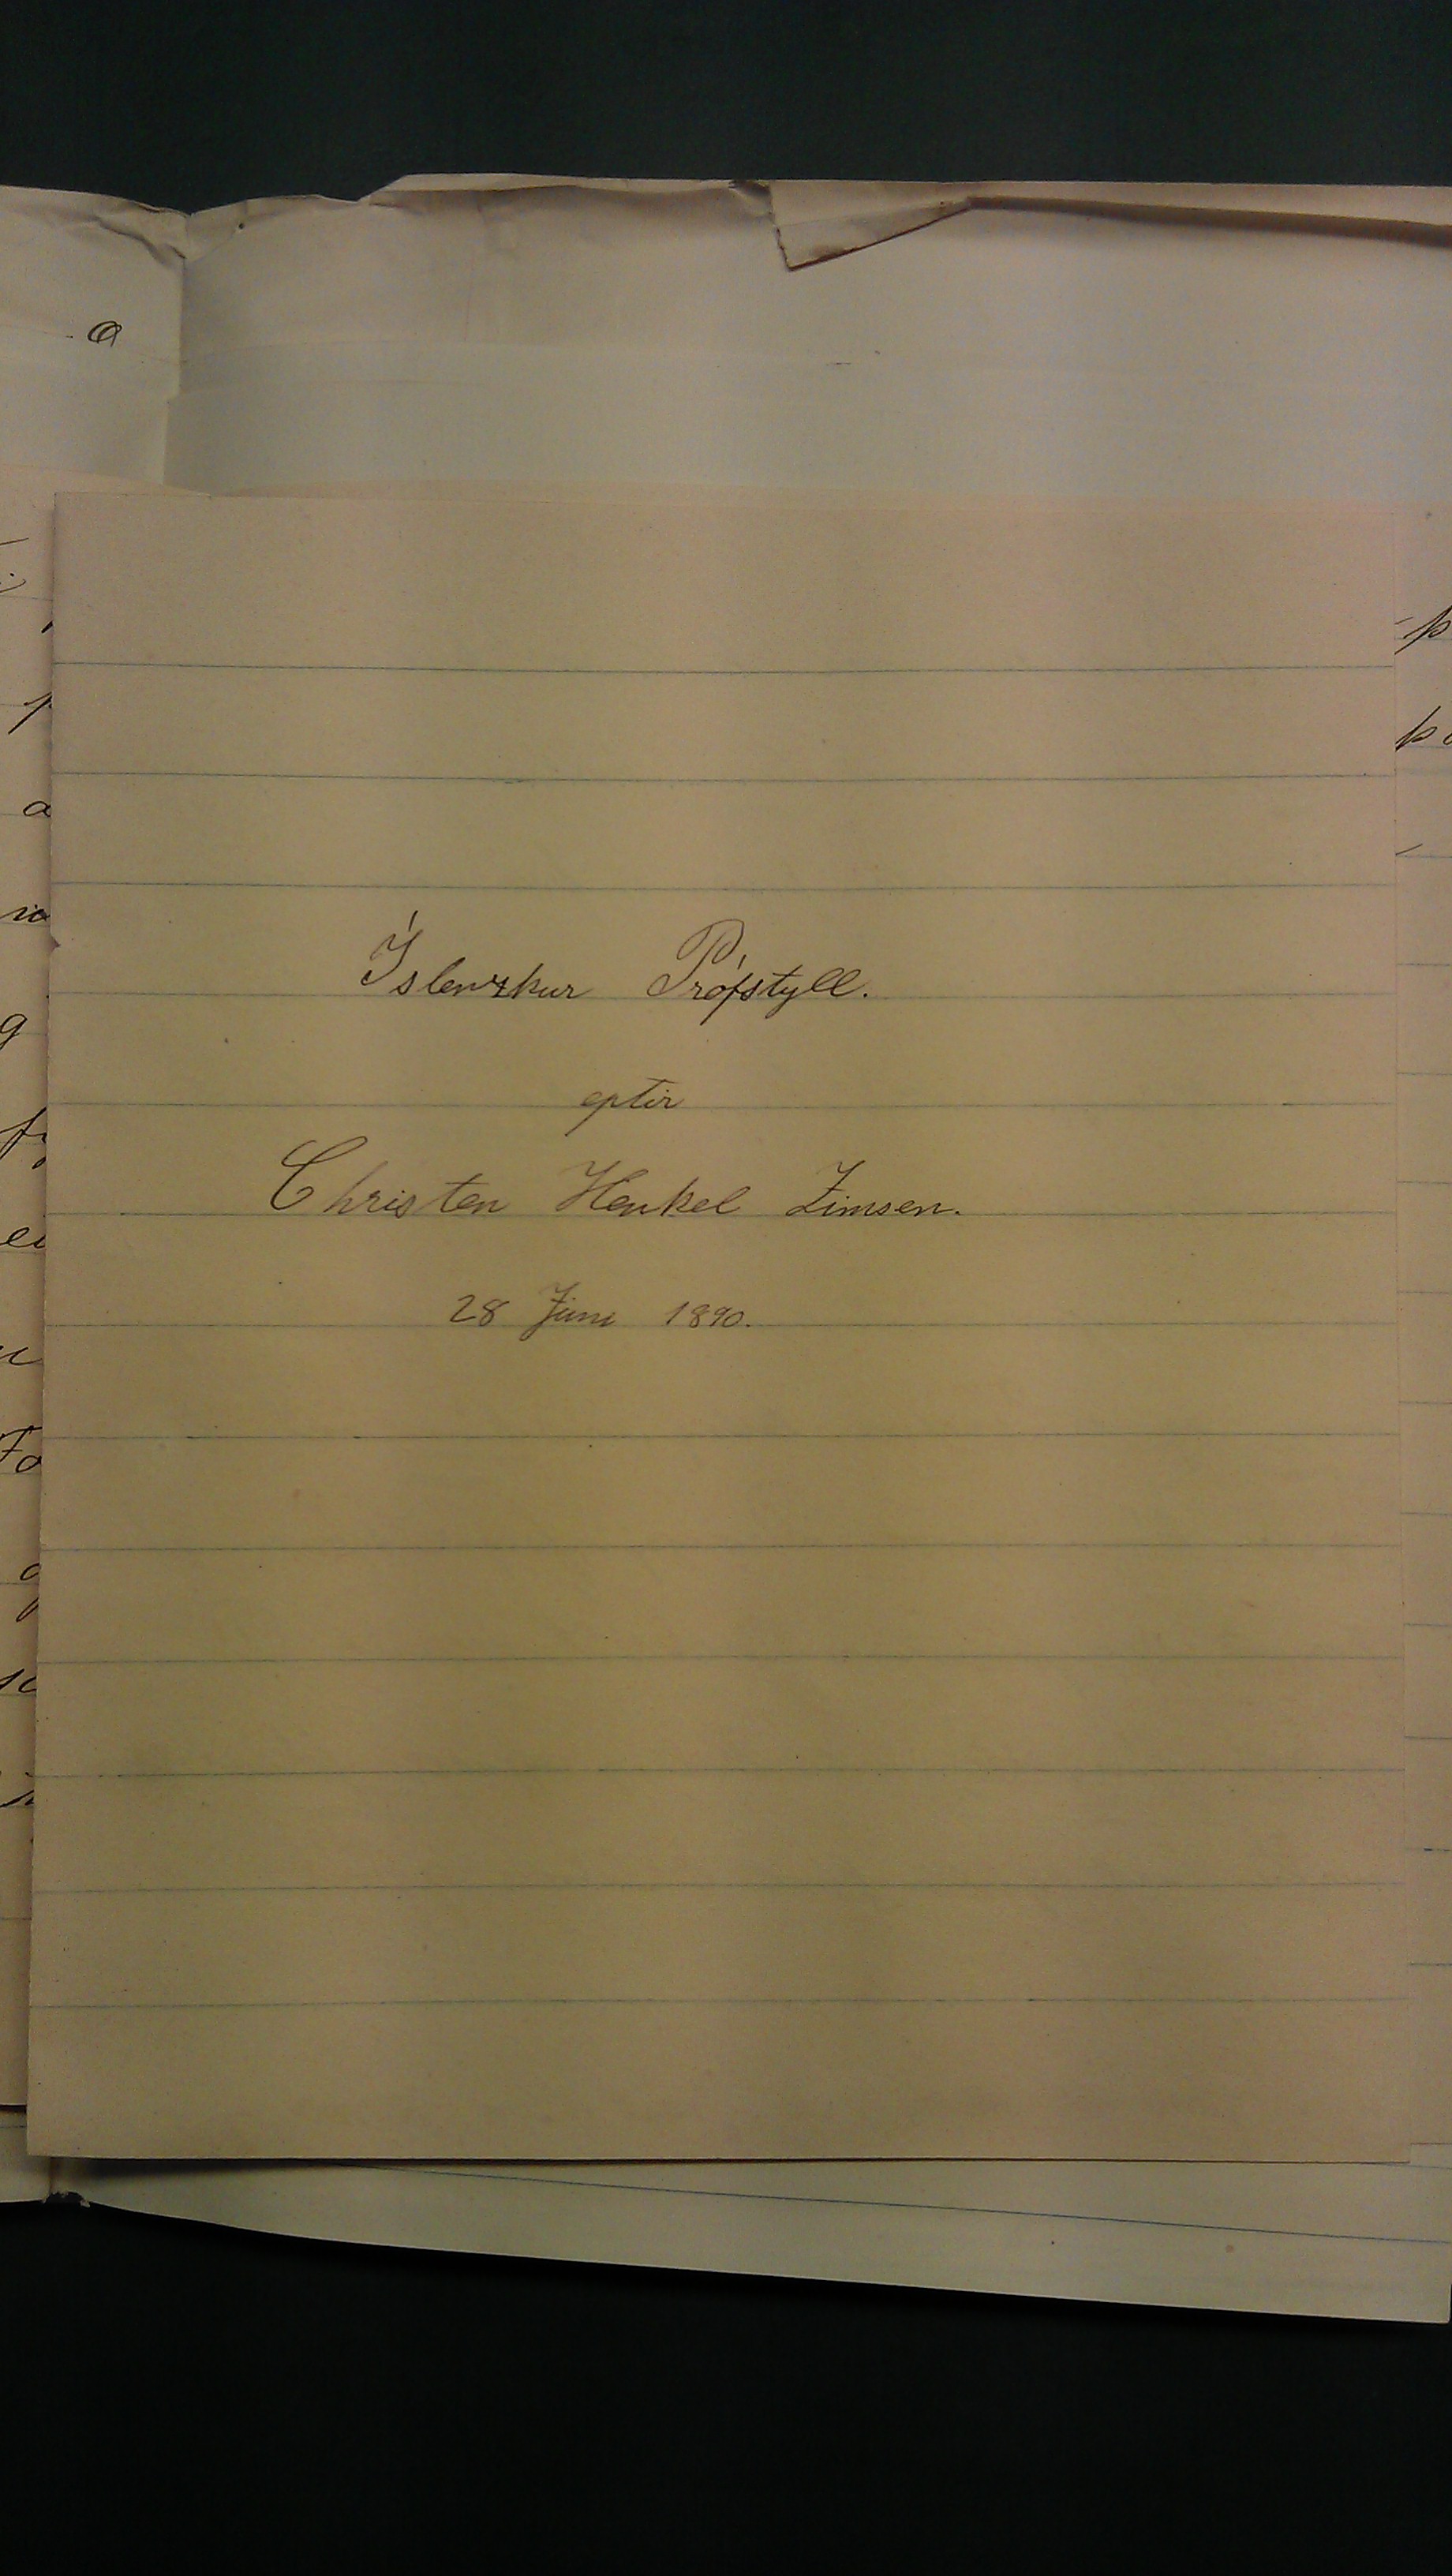 Íslenzkur Prófstyll.
eptir
Christen Henkel Zimsen.
28 Júni 1890.